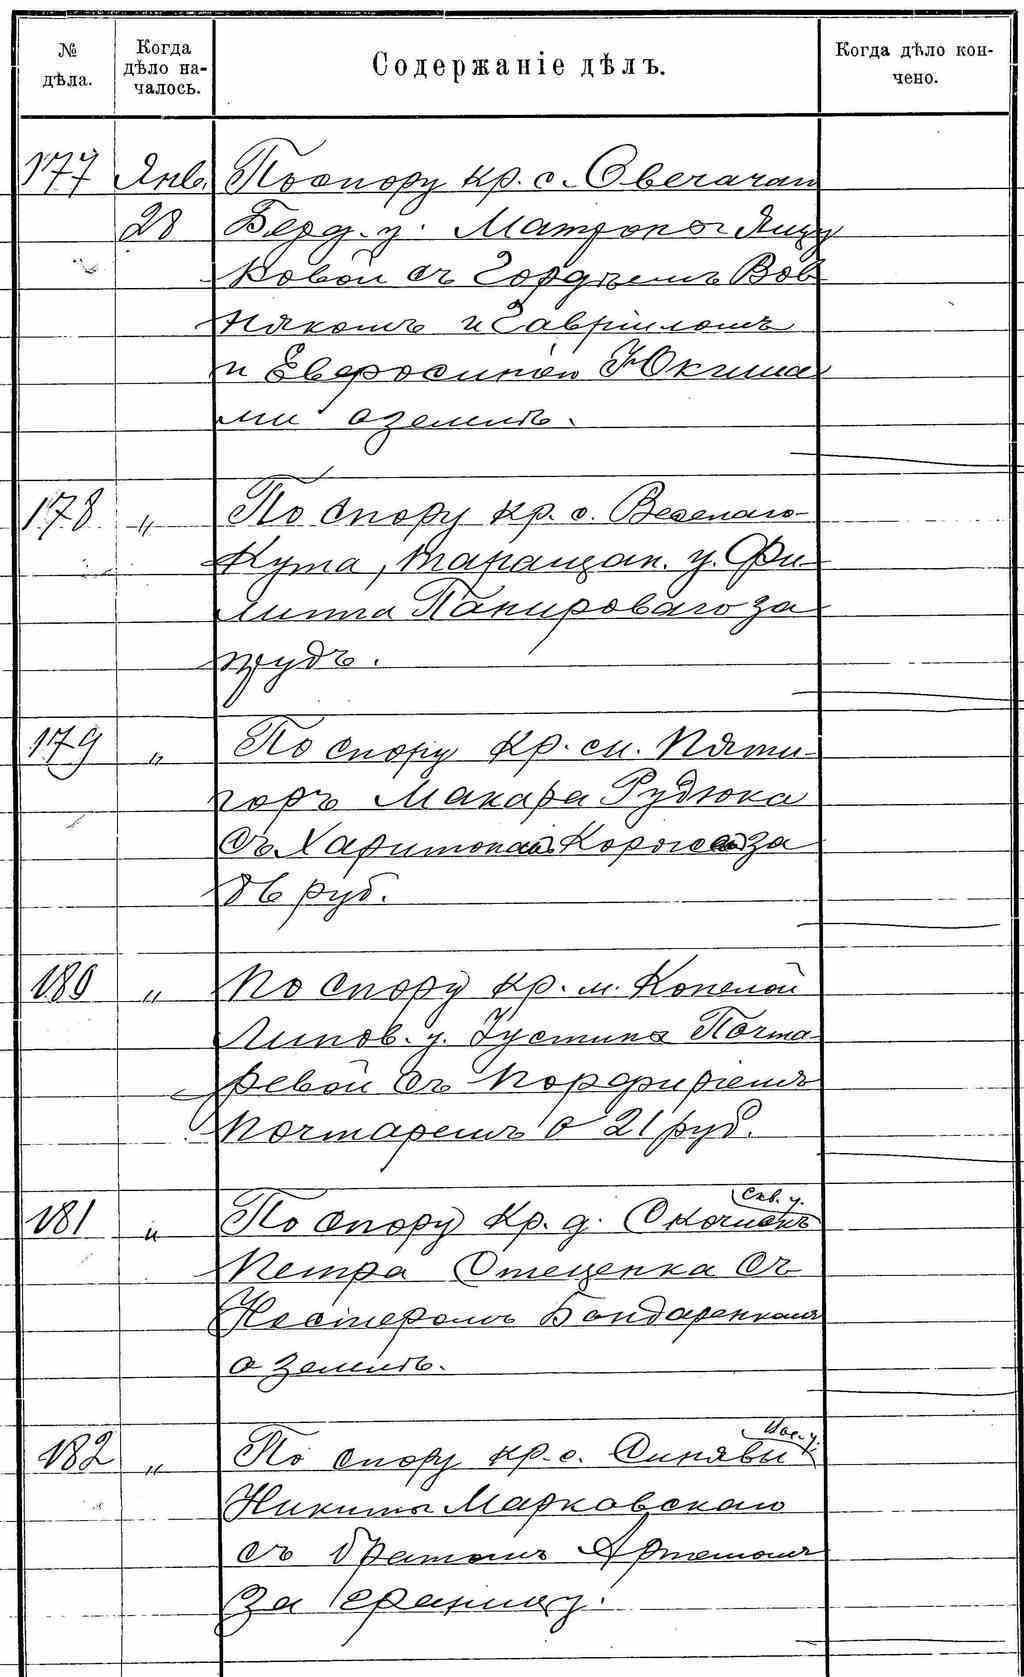 № дѣла.
Когда дѣло на-
чалось.
Содержаніе дѣлъ.
Когда дѣло кон-
чено.
177 Янв. По спору кр. с. Овечачан
28 Берд. у. Матроны Ящу
ковой съ Гордѣемъ Вов
някомъ и Гавріиломъ
и Евфросиніей
ми о землѣ.
178 " По спору кр. с. Веселаго
Кута, Таращан. у. Фи-
липпа Папироваго за
прудъ.
179 " По спору кр. м. Пяти-
горъ Макара Рудюка
съ Харитономъ за
86 руб.
180 " По спору кр. м. Копелой
Липов. у. Іустины Почта-
ревой съ Порфиріемъ
Почтаремъ о 21 руб.
Скв. у.
181 " По спору кр. д. Скочиокъ
Петра Стеценка съ
Несторомъ Бондаренкомъ
о землѣ.
Вас. у.
182 " По спору кр. с. Синявы
Никиты Марковскаго
съ братомъ Артемомъ
за границу.